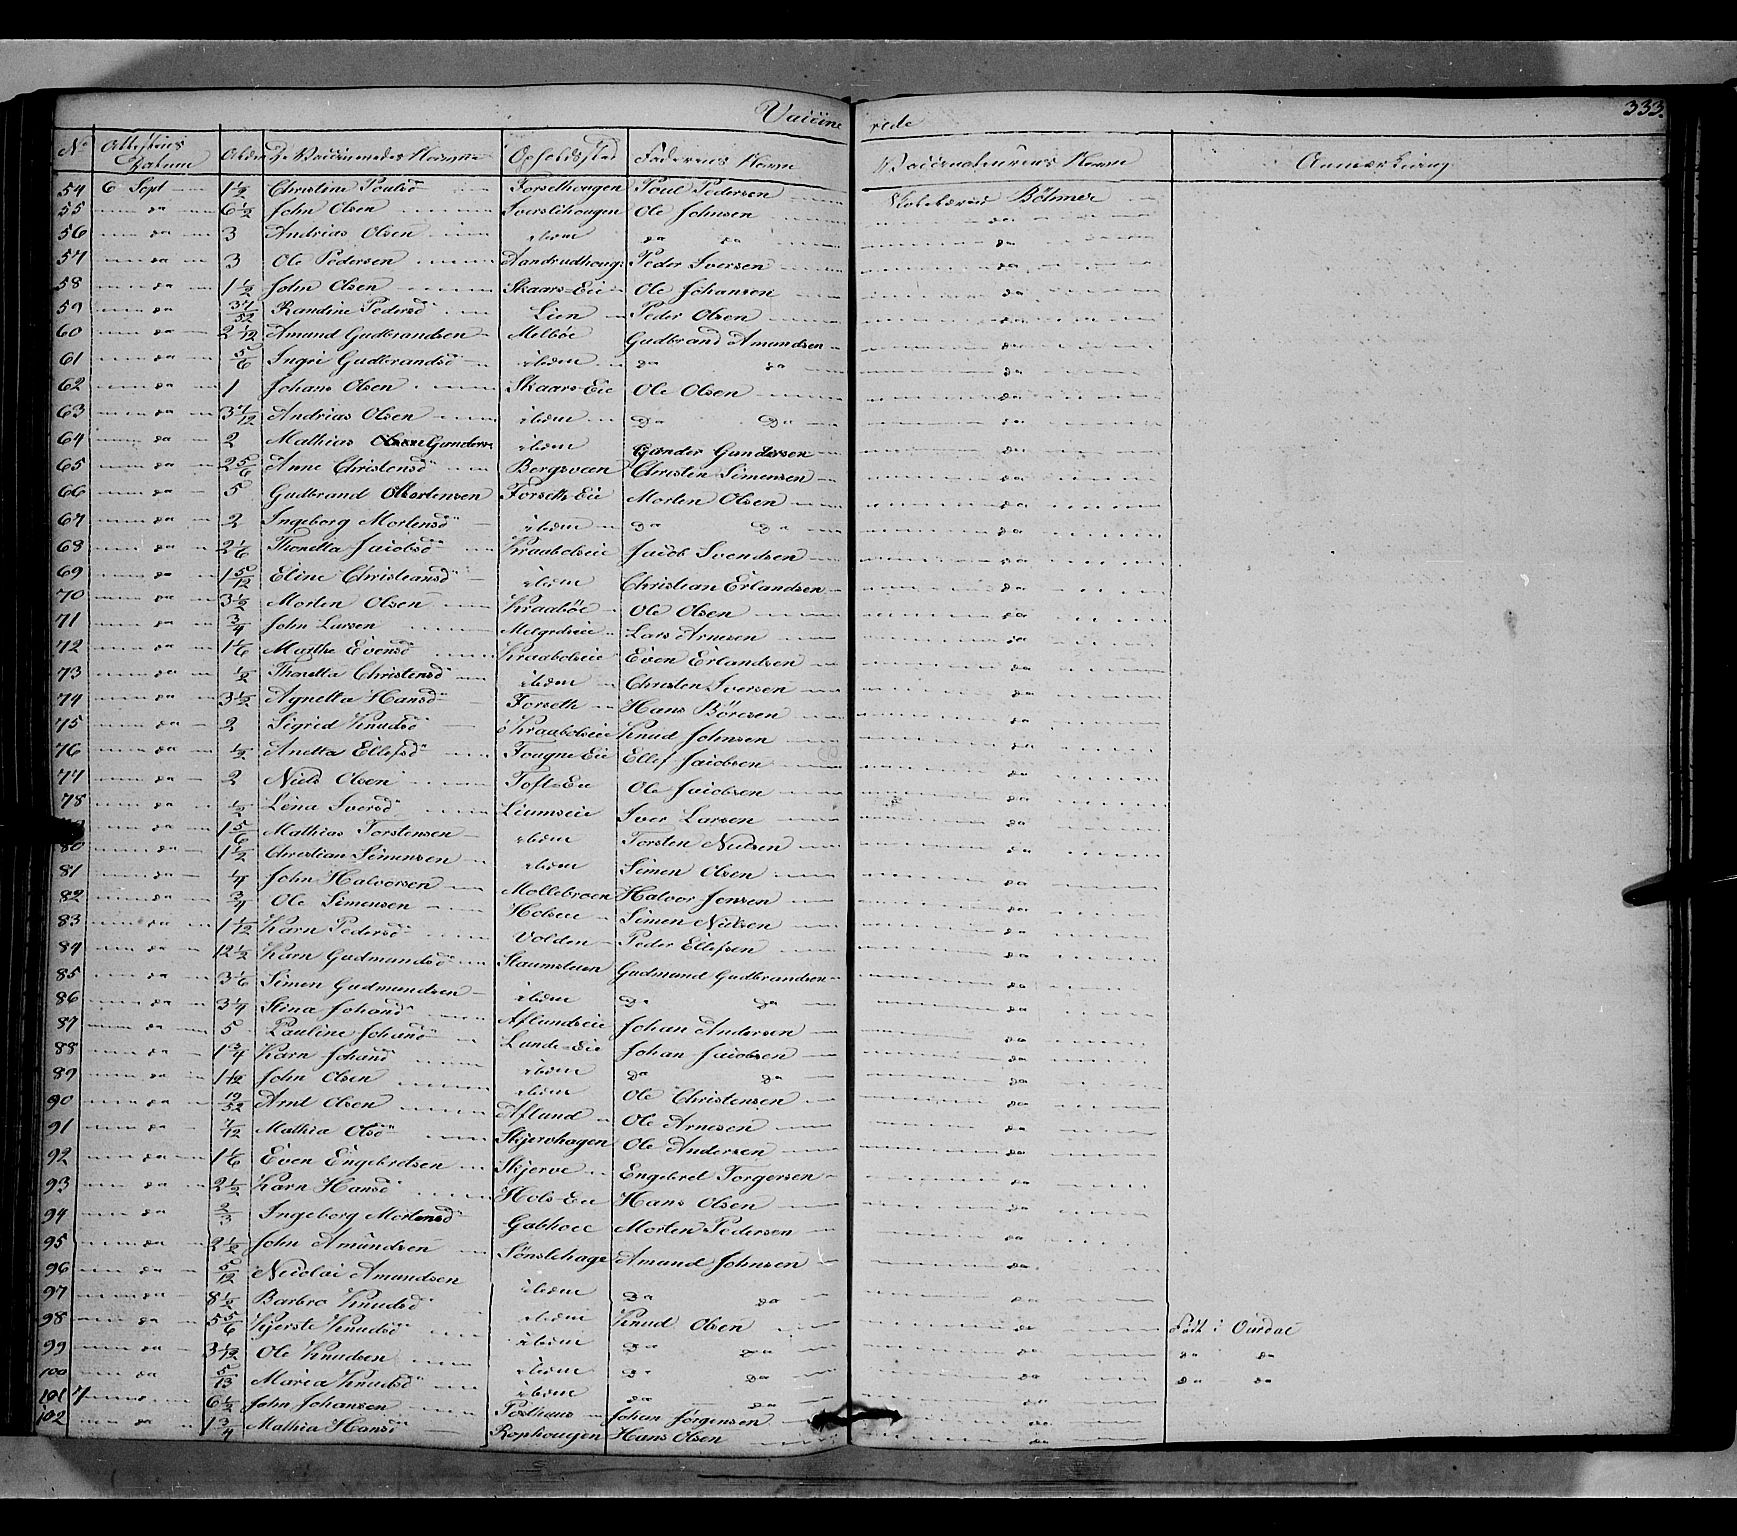 Vaccine rede 333.
No Attestens Datum Alder De Vaccineredes Navne Opholdssted Faderens Navn Vaccinateurens Navn Anmærkning
54 6 Sept 1 1/2 Christine Poulsd Forsethougen Poul Pedersen Böhmer
55 da 6 1/2 John Olsen Iverslihougen Ole Johnsen da
56 da 3 Andrias Olsen ibidem da da da
57 da 3 Ole Pedersen Peder Iversen da
58 da 1 1/2 John Olsen Skaars-Eie Ole Johansen da
59 da 37/52 Randine Pedersd Lien Peder Olsen da
60 da 2 1/12 Amund Gudbrandsen Melbøe Gudbrand Amundsen da
61 da 5/6 Inger Gudbrandsd ibidem da da da
62 da 1 Johans Olsen Skaars-Eie Ole Olsen da
63 da Andrias Olsen ibidem da da da
64 da 2 Mathias Gunders ibidem Gunder Gundersen da
65 da 2 5/6 Anne Christensd Bergsvæen Christen Simensen da
66 da 5 Gudbrand Mortensen Forseth-Eie Morten Olsen da
67 da 2 Ingeborg Mortensd ibidem da da da
68 da 2 1/6 Thonetta Jacobsd Kraabolseie Jacob Svendsen da
69 da 1 5/12 Eline Christiansd ibidem Christian Erlandsen da
70 da 3 1/2 Morten Olsen Kraabøe Ole Olsen da
71 da 3/4 John Larsen Lars Arnesen da
72 da 1 1/6 Marthe Evensd Kraabolseie Even Erlandsen da
73 da 1/2 Thonetta Christensd ibidem Christen Iversen da
74 da 3 1/2 Agnetta Hansd Forseth Hans Böresen da
75 da 2 Sigrid Knudsd Kraabolseie Knud Johnsen da
76 da 1/2 Anetta Ellefsd Fougne-Eie Ellef Jacobsen da
77 da 2 Niels Olsen Toft-Eie Ole Jacobsen da
78 da 1/2 Lena Iversd Liumseie Iver Larsen da
da 1 5/6 Mathias Torstensen ibidem Torsten Nielsen da
80 da 1 1/2 Christian Simensen ibidem Simen Olsen da
81 da 1/4 John Halvorsen Mollebroen Halvor Jensen da
82 da 3/4 Ole Simensen Holseie Simen Nielsen da
83 da 1 1/12 Karn Pedersd Volden Peder Ellefsen da
84 da 12 1/2 Karn Gudmundsd Gudmund Gudbrandsen da
85 da 3 1/6 Simen Gudmundsen ibidem da da da
86 da 3 1/4 Stina Johansd Aflundseie Johan Andersen da
87 da 5 Pauline Johansd Lunde-Eie Johan Jacobsen da
88 da 1 3/4 Karn Johansd ibidem da da da
89 da 1 1/12 John Olsen ibidem Ole Christensen da
90 da 19/52 Arnt Olsen Aflund Ole Arnesen da
91 da 7/12 Mathia Olsd Skjervhagen Ole Andersen da
92 da 1 1/6 Even Engebretsen Skjerve Engebret Torgersen da
93 da 2 1/2 Karn Hansd Hols-Eie Hans Olsen da
94 da 2/3 Ingeborg Mortensd Morten Pedersen da
95 da 2 1/2 John Amundsen Sönslihage Amund Johnsen da
96 da 5/12 Nicolai Amundsen ibidem da da da
97 da 8 1/2 Barbro Knudsd ibidem Knud Olsen da Født i Ourdal
98 da 5 5/6 Kjersti Knudsd ibidem da da da da da
99 da 3 1/12 Ole Knudsen ibidem da da da da da
100 da 5/13 Marea Knudsd ibidem da da da
101 7 6 1/2 John Johansen Posthaus Johan Jörgensen da
102 da 1 3/4 Mathia Hansd Rophougen Hans Olsen da